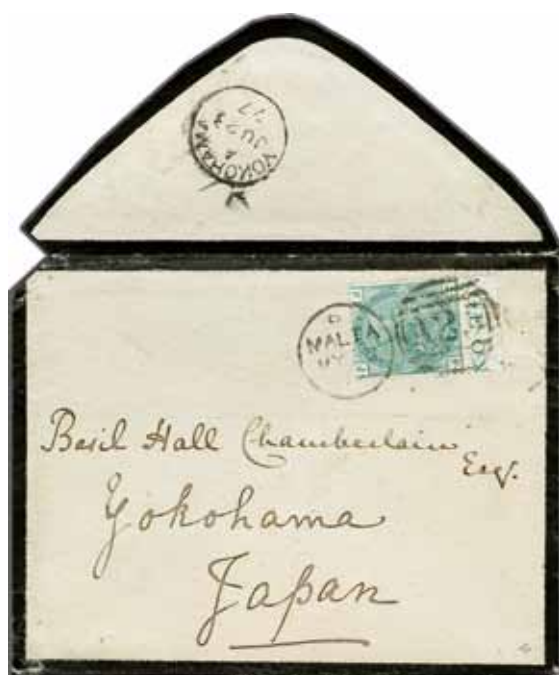 YOKOHAMA
JU 23
77
MALTA
MY
Basil Hall Chamberlain
Esq.
Yokohama
Japan